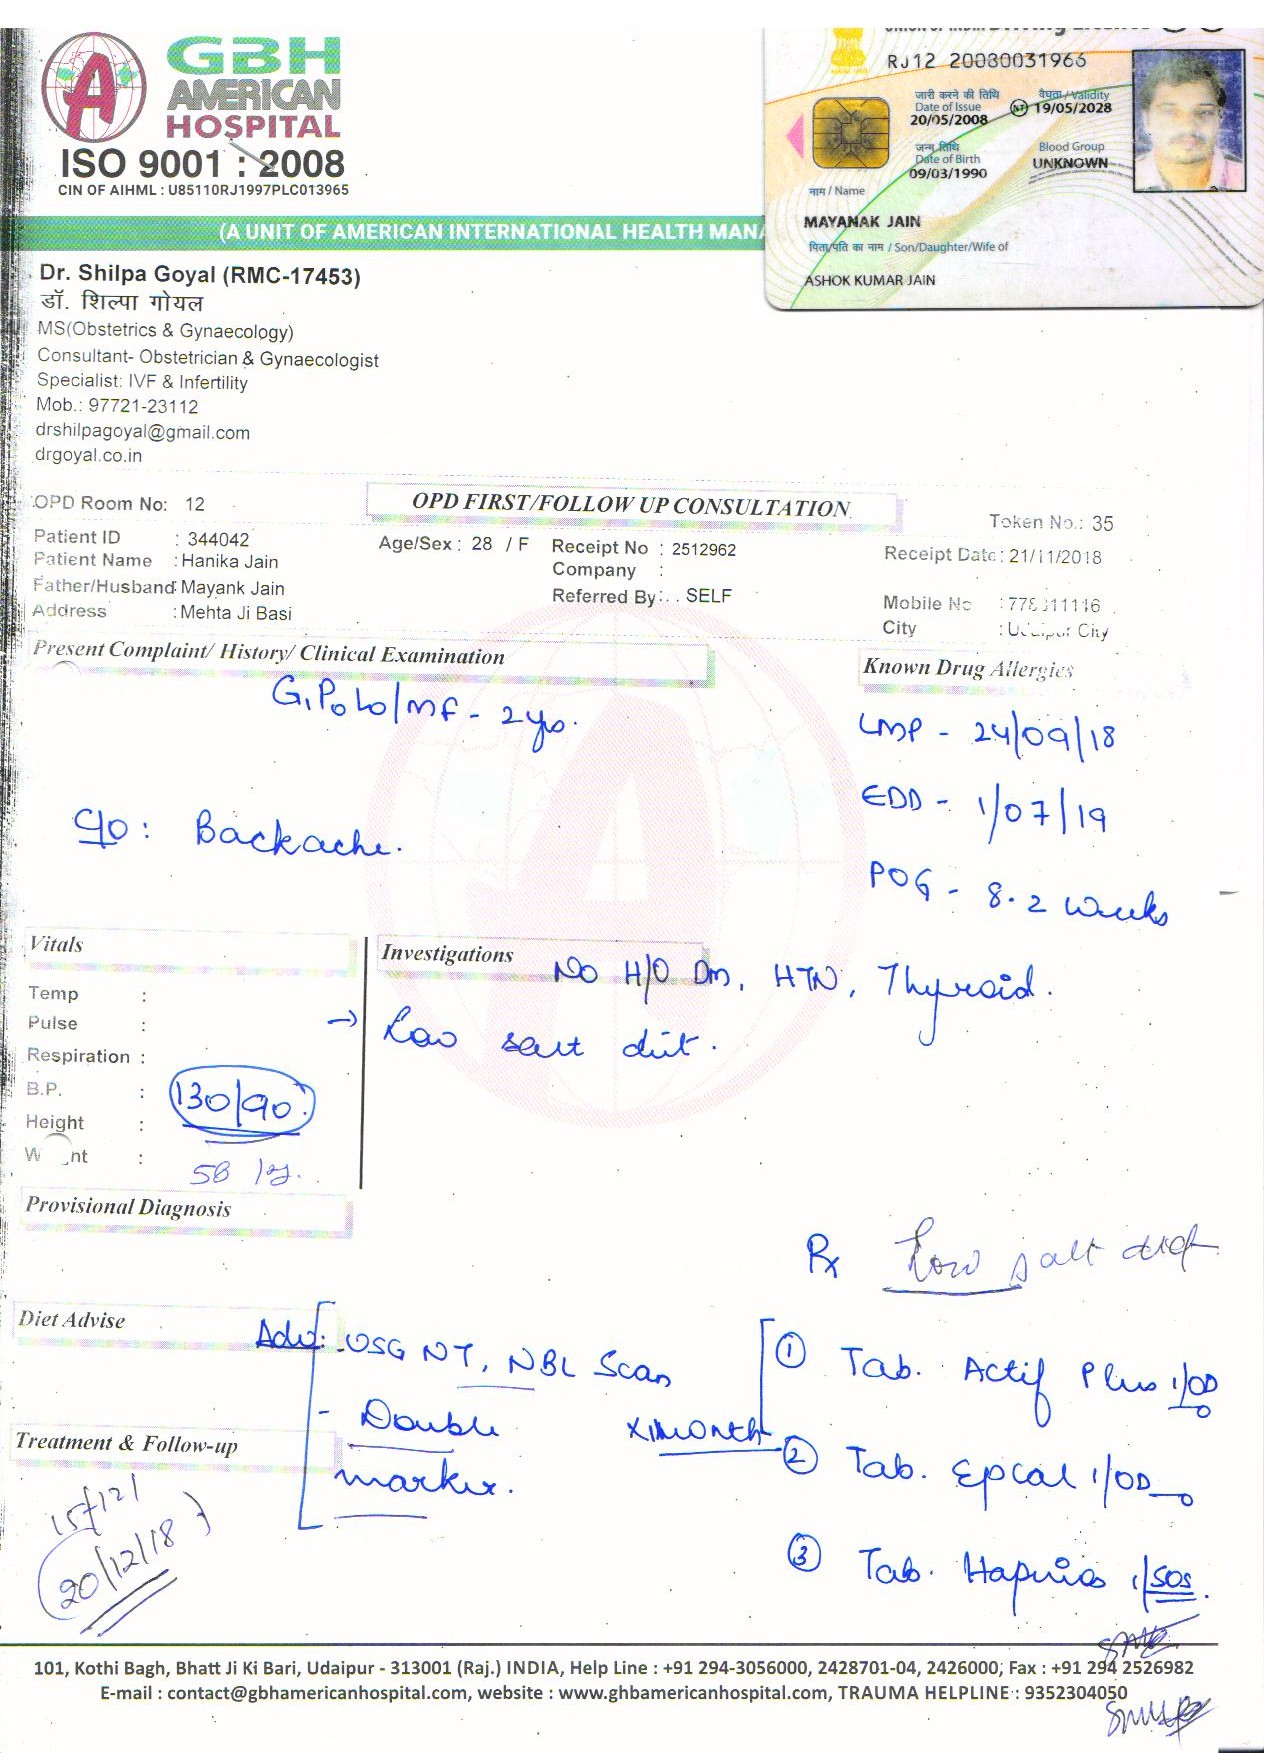 GBH
AMERICAN
HOSPITAL
ISO 9001 : 2008
CIN OF AIHML : U85110RJ1997PLC013965
RJ12 20080031966
जारी करने की तिथि
Date of Issue
20/05/2008
वैधता / Validity
NT 19/05/2028
जन्म तिथि
Date of Birth
09/03/1990
Blood Group
UNKNOWN
नाम / Name
MAYANAK JAIN
पिता/पति का नाम / Son/Daughter/Wife of
ASHOK KUMAR JAIN
(A UNIT OF AMERICAN INTERNATIONAL HEALTH MANA
Dr. Shilpa Goyal (RMC-17453)
डॉ. शिल्पा गोयल
MS(Obstetrics & Gynaecology)
Consultant- Obstetrician & Gynaecologist
Specialist: IVF & Infertility
Mob.: 97721-23112
drshilpagoyal@gmail.com
drgoyal.co.in
OPD Room No: 12
OPD FIRST/FOLLOW UP CONSULTATION
Token No.: 35
Patient ID : 344042
Age/Sex : 28 / F
Receipt No : 2512962
Receipt Date: 21/11/2018
Patient Name : Hanika Jain
Company :
Father/Husband: Mayank Jain
Referred By: . . SELF
Mobile No
Address : Mehta Ji Basi
City : Udaipur City
Present Complaint/ History/ Clinical Examination
Known Drug Allergies
G1P0L0/MF - 2yrs.
LMP - 24/09/18
EDD - 1/07/19
C/o: Backache.
POG - 8.2 weeks
Vitals
Investigations
No H/O Dm, HTN, Thyroid.
Temp :
Pulse :
→ Low salt diet.
Respiration :
B.P. : 130/90
Height :
: 58 kg.
Provisional Diagnosis
Rx Low salt diet
Diet Advise
Adv: USG NT, NBL Scan
- Double
marker.
x1month
① Tab. Actif Plus 1/OD
② Tab. Epcal 1/OD
③ Tab. 1/SOS.
Treatment & Follow-up
15/12/
20/12/18
101, Kothi Bagh, Bhatt Ji Ki Bari, Udaipur - 313001 (Raj.) INDIA, Help Line : +91 294-3056000, 2428701-04, 2426000; Fax : +91 294 2526982
E-mail : contact@gbhamericanhospital.com, website : www.ghbamericanhospital.com, TRAUMA HELPLINE : 9352304050